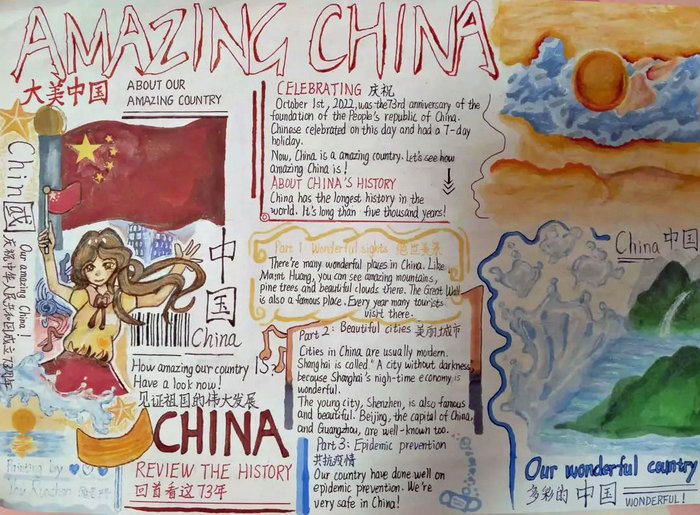 AMAZING CHINA
大美中国
ABOUT OUR
AMAZING COUNTRY
CELEBRATING 庆祝
October 1st, 2022, was the73rd anniversary of the
foundation of the People's republic of China.
Chinese celebrated on this day and had a 7-day
holiday.
Now, China is a amazing country. Let's see how
amazing China is!
ABOUT CHINA'S HISTORY
China has the longest history in the
world. It's long than five thousand years!
Chin国
Our amazing China!
庆祝中华人民共和国成立73周年
中国
China
Part 1: Wonderful sights 绝世美景
There're many wonderful places in China. Like
Mount Huang, you can see amazing mountains,
pine trees and beautiful clouds there. The Great Wall
is also a famous place. Every year many tourists
visit there.
Part 2: Beautiful cities 美丽城市
Cities in China are usually modern.
Shanghai is called "A city without darkness"
because Shanghai's nigh-time economy is
wonderful.
The young city, Shenzhen, is also famous
and beautiful. Beijing, the capital of China,
and Guangzhou, are well-known too.
Part 3: Epidemic prevention
共抗疫情
Our country have done well on
epidemic prevention. We're
very safe in China!
How amazing our country IS
Have a look now!
见证祖国的伟大发展
CHINA
REVIEW THE HISTORY
回首看这73年
Painting by
China 中国
Our wonderful country
多彩的 中国 WONDERFUL!